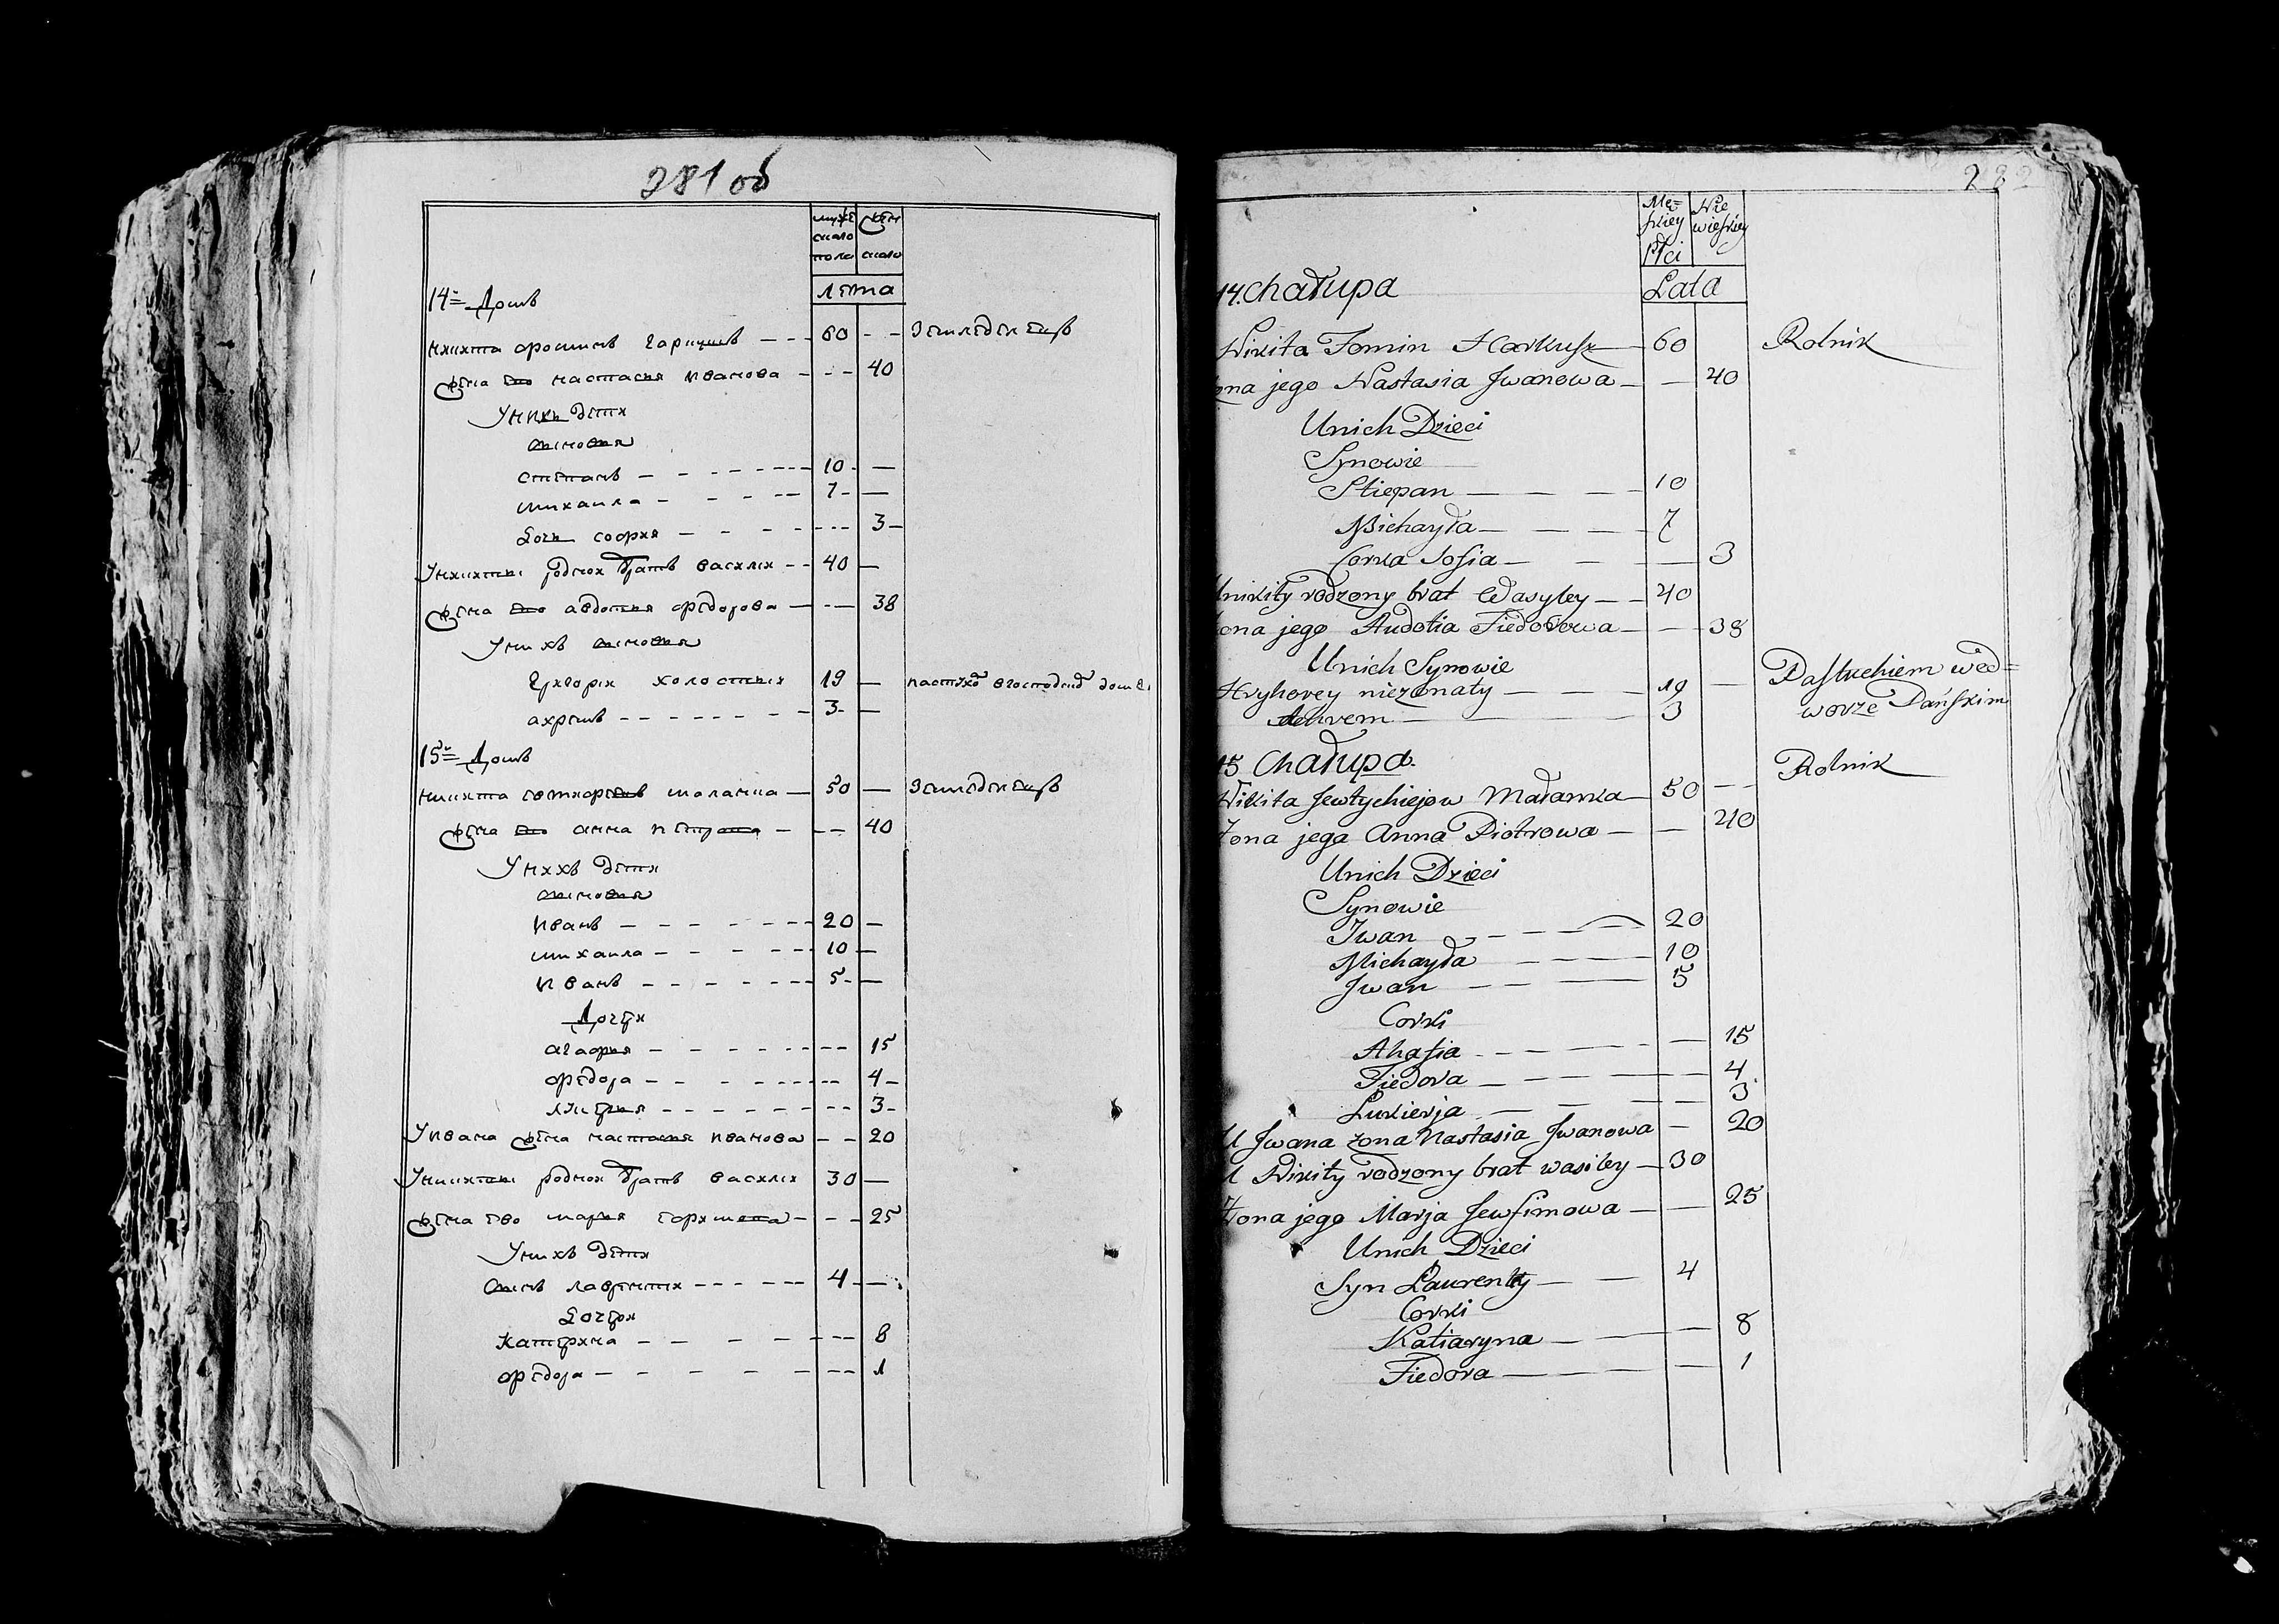 281 об
мужеска пола
женска
лета
14= Домъ
Никита Фоминъ Гаркушъ — 60 — Земледелецъ
жена его Настасия Иванова — 40
У них дети
сыновья
Степанъ — 10 —
Михаила — 7 —
Дочь София — 3 —
У Никиты родной братъ Василий — 40 —
жена его Авдотия Федорова — 38
У нихъ сыновья
Григорий холостый 19 —
Ахремъ — 3 —
15= Домъ
Никита Евтихиевъ Маламка — 50 — Земледелецъ
жена его Анна Петрова — 40
У нихъ дети
сыновья
Иванъ — 20 —
Михаила — 10 —
Иванъ — 5 —
Дочери
Агафия — 15
Федора — 4 —
Лукерия — 3 —
У Ивана жена Настасия Иванова — 20
У Никиты родной братъ Василий 30 —
жена его Мария — 25
У нихъ дети
Сынъ Лаврентий — 4 —
Дочери
Катерина — 8
Федора — 1
282
Mę=skiey Płci
Niewieskiey
Lata
14. Chałupa
Nikita Fomin Harkusz — 60 Rolnik
ona jego Nastasia Jwanowa — — 40
Unich Dzieci
Synowie
Stiepan — 10
Michayła — 7
Corka Sofia — 3
Unikity rodzony brat Wasyley — 40
ona jego Audotia Fiedorowa — — 38
Unich Synowie
Hryhorey nieżonaty — 19 — Pastuchiem wed=
Achrem — 3 worze Pańskim
15 Chałupa.
Nikita Jewtychiejow Małamka — 50 — Rolnik
Żona jega Anna Piotrowa — — 40
Unich Dzieci
Synowie
Jwan — 20
Michayła — 10
Jwan — 5
Corki
Ahafia — 15
Fiedora — 4
Lukierja — 3
U Jwana żona Nastasia Jwanowa — 20
U Nikity rodzony brat wasiley — 30
Żona jego Marja Jewfimowa — — 25
Unich Dzieci
Syn Laurenty — 4
Corki
Katiaryna — 8
Fiedora — 1